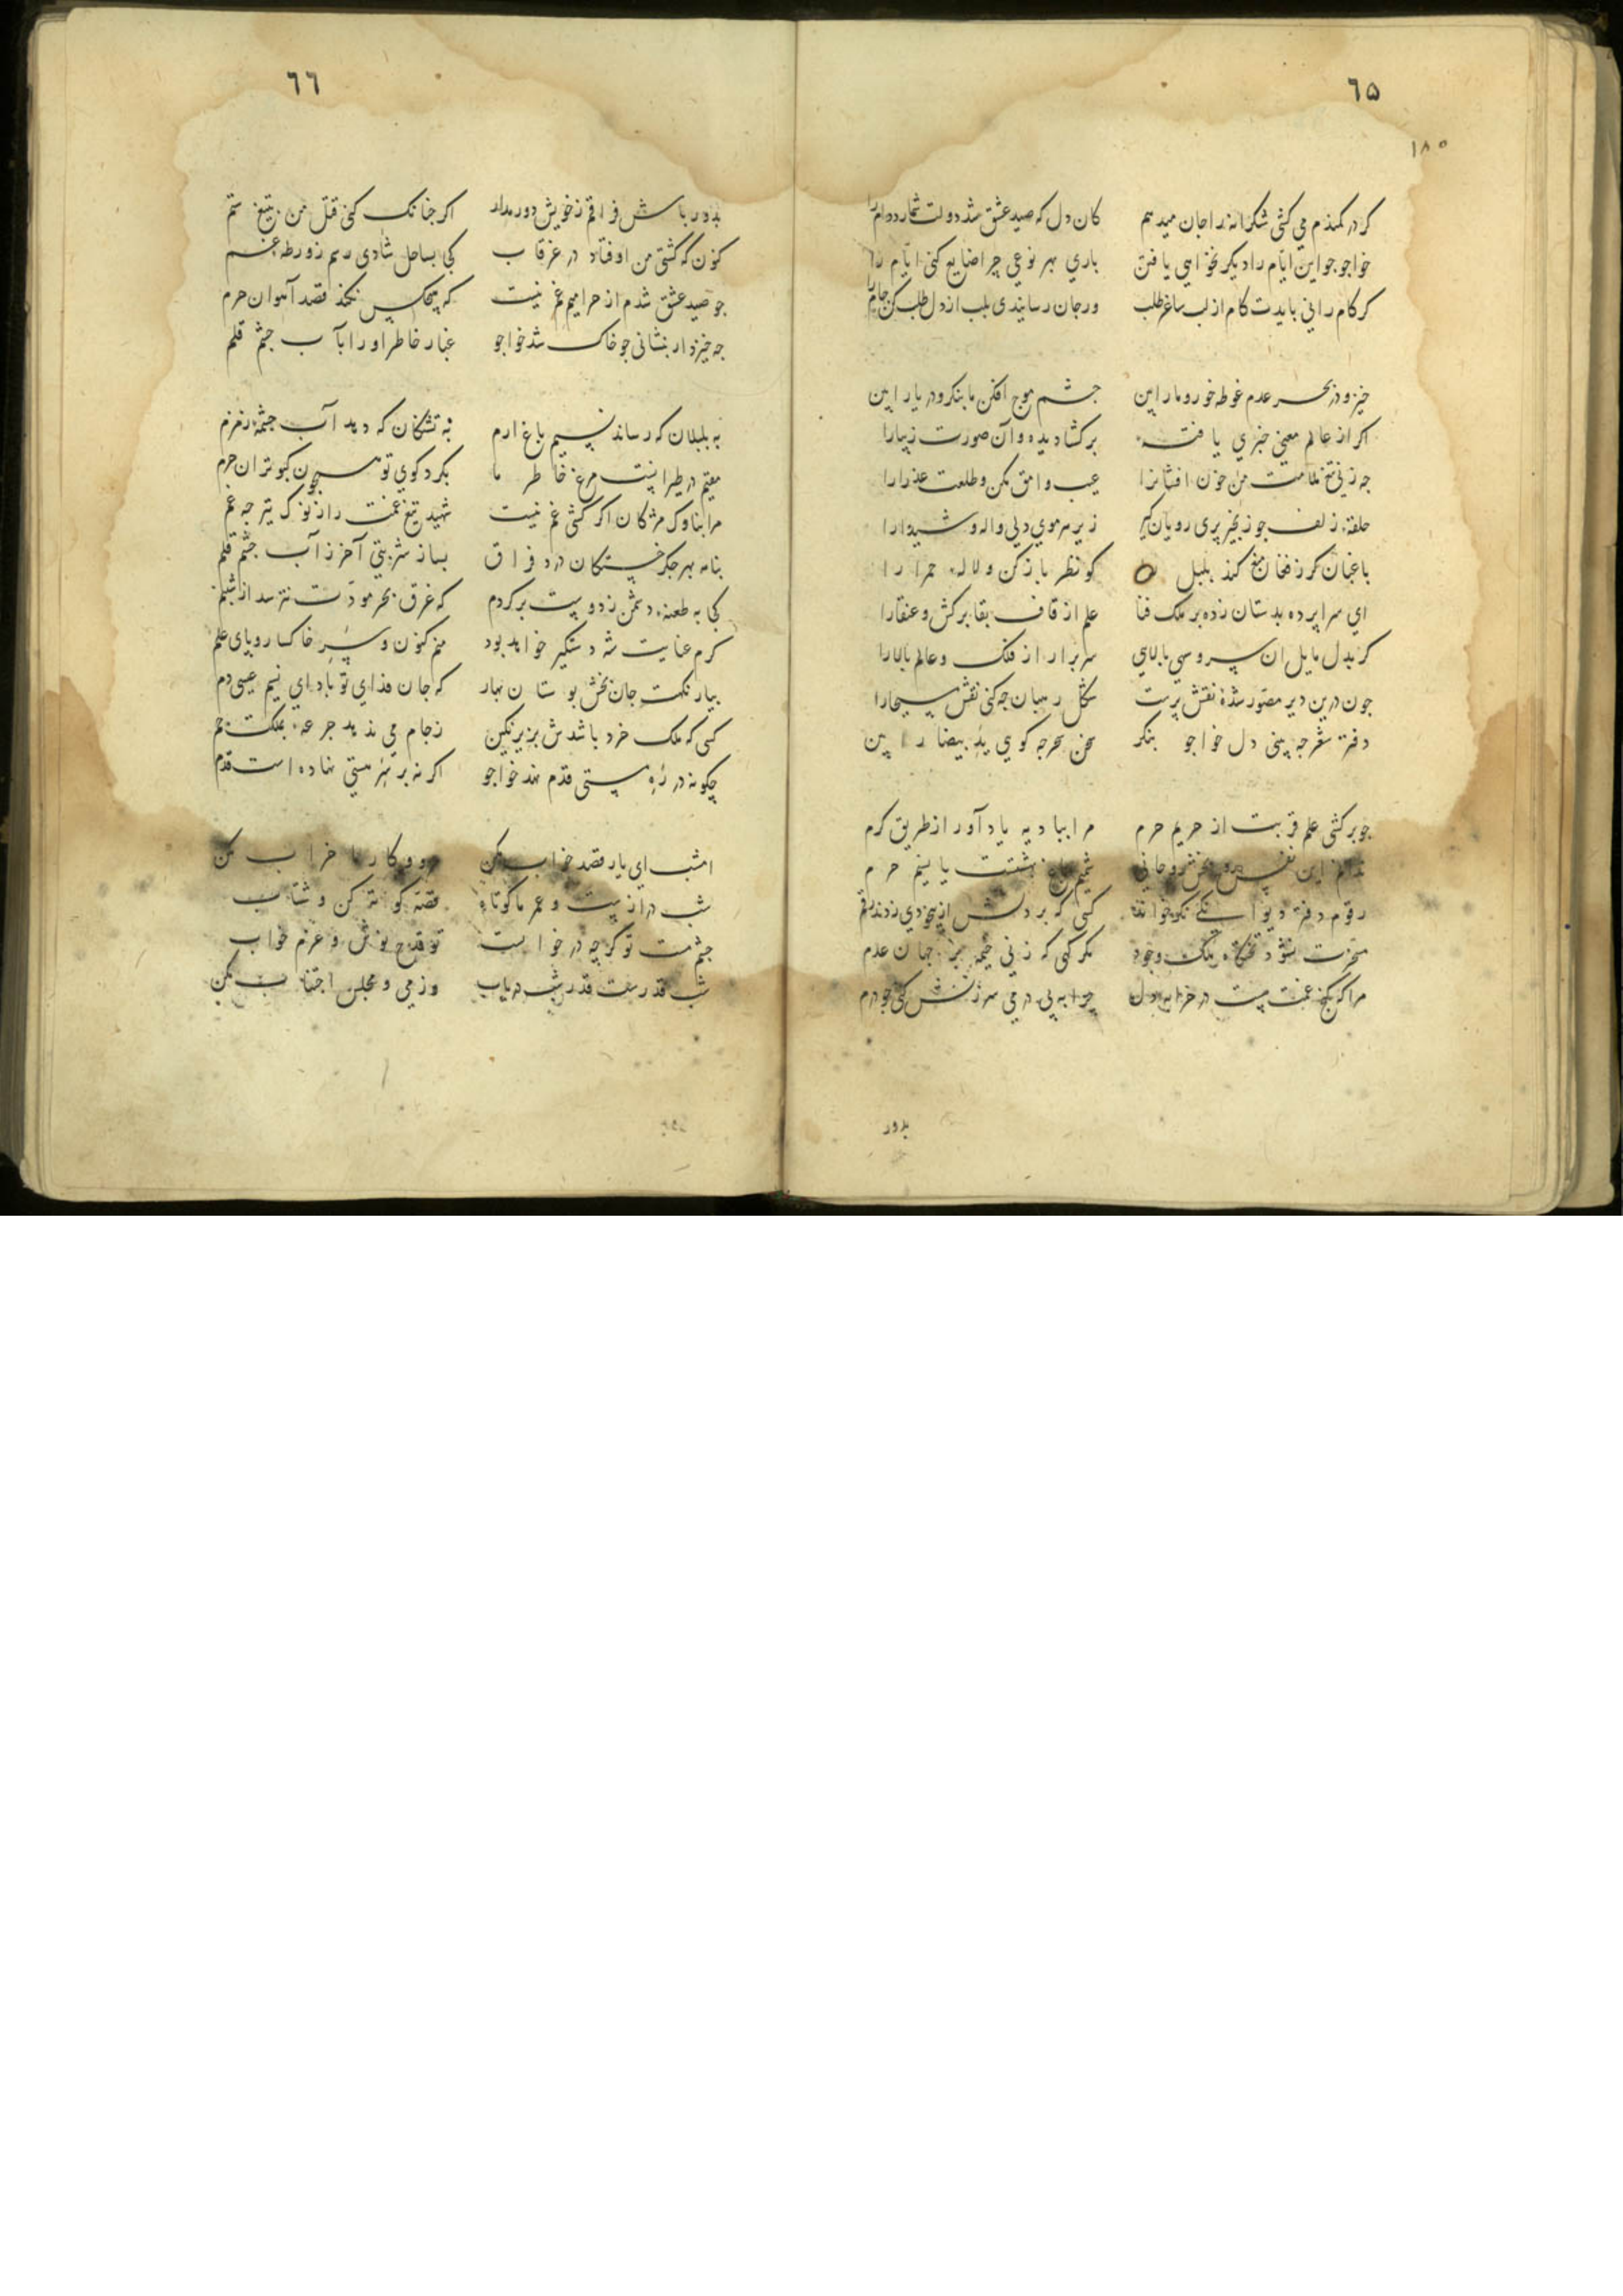 ٦٥
١٨٥
كر در كمندم مي كشي شكرانه را جان ميدهم كان دل كه صيد عشق شد دولت شمارد دام را
خواجو جو اين ايّام را ديكر نخواهي يافتن باري بهر نوعي چرا ضايع كني ايّام را
كر كام راني بايدت كام از لب ساغر طلب ور جان رسانيدي بلب از دل طلب كن جام را
خيز و در بحر عدم غوطه خور و ما را بين چشم موج افكن ما بنكر و دريا را بين
اكر از عالم معني خبري يافته بر كشا ديده و آن صورت زيبا را
جه زني تيغ ملامت من خون افشانرا عيب وامق مكن و طلعت عذرا را
حلقهٔ زلف جو زنجير پري رويان كير زير هر موي دلي واله و شيدا را
باغبان كر ز فغان منع كند بلبل كو نظر باز كن و لالهٔ حمرا را
اي سراپرده بدستان زده بر ملك فنا علم از قاف بقا بركش و عنقا را
كر بدل مايل ان سرو سهي بالايي سر برار از فلك و عالم بالا را
جون درين دير مصّور شدهٔ نقش پرست شكل رهبان جه كني نقش مسيحا را
دفتر شعر جه بيني دل خواجو بنكر سخن سحر جه كوي يد بيضا را بين
جو بر كشي علم قربت از حريم حرم مرا بباديه ياد آور از طريق كرم
ندانم اين نفس روح بخش روحاني شميم باغ بهشتست يا نسيم حرم
رقوم دفتر ديوانكي نكو خواند كسي كه بر دلش از بيخودي زدند رقم
مسخرت نشود تختكاه ملك وجود مكر كهي كه زني خيمه بر جهان عدم
مرا كه كنج غمت هست در خرابهٔ دل چرا به بي درمي سرزنش كني جو درم
بدور
٦٦
بدور باش فراقم ز خويش دور مدار اكر جنانك كني قتل من بتيغ ستم
كنون كه كشتي من اوفتاد در غرقاب كي بساحل شادي رسم ز ورطه غم
جو صيد عشق شدم از حراميم غم نيست كه هيچكس نكند قصد آهوان حرم
جه خيزد ار بنشاني جو خاك شد خواجو غبار خاطر او را بآب چشم قلم
به بلبلان كه رساند نسيم باغ ارم به تشنكان كه دهد آب چشمه زمزم
مقيم در طيرانيست مرغ خاطر ما بكرد كوي تو همچون كبوتران حرم
مرا بناوك مژكان اكر كشي غم نيست شهيد تيغ غمت را ز نوك تير جه غم
بنامه بهر جكر خستكان درد فراق بساز شربتي آخر ز آب چشم قلم
كجا به طعنه دشمن ز دوست بركردم كه غرق بحر مودّت نترسد از شبنم
كرم عنايت شه دستكير خواهد بود منم كنون و سر خاكسار و پاي علم
بيار نكهت جان بخش بوستان بهار كه جان فداي تو باد اي نسيم عيسي دم
كسي كه ملك خرد باشدش بزير نكين ز جام مي ندهد جرعه بمملكت جم
چكونه در ره مستي قدم نهد خواجو اكر نه بر سر هستي نهاده است قدم
امشب اي يار قصد خواب مكن مرو و كار ما خراب مكن
شب درازست و عمر ما كوتاه قصّه كوته كن و شتاب
جشم مست تو كر چه در خوابست تو قدح نوش و عزم خواب
شب قدرست قدر شب درياب وز مي و مجلس اجتناب مكن